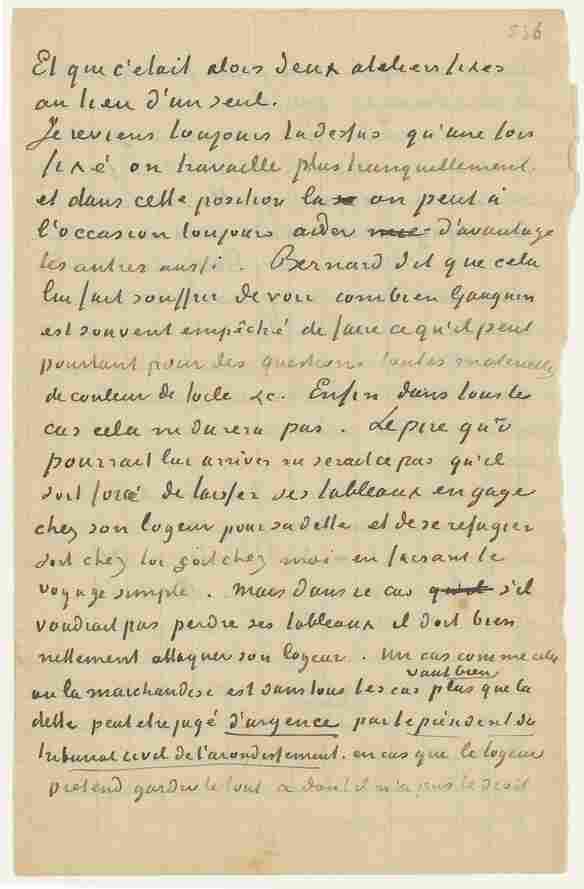 536
Et que c'etait alors deux ateliers fixes
au lieu d'un seul.
Je reviens toujours la dessus qu'une fois
fixé on travaille plus tranquillement.
et dans cette position la on peut à
l'occasion toujours aider d'avantage
les autres aussi. Bernard dit que cela
lui fait souffrir de voir combien Gauguin
est souvent empêché de faire ce qu'il peut
pourtant pour des questions toutes materielles
de couleur de toile &c. Enfin dans tous les
cas cela ne durera pas. Le pire qu'il
pourrait lui arriver ne serait ce pas qu'il
soit forcé de laisser ses tableaux en gage
chez son logeur pour sa dette et de se refugier
soit chez toi soit chez moi en faisant le
voyage simple. Mais dans ce cas qu'il s'il
voudrait pas perdre ses tableaux il doit bien
nettement attaquer son logeur. Un cas comme cela
vaut bien
ou la marchandise est dans tous les cas plus que la
dette peut etre jugé d'urgence par le président du
tribunal civil de l'arondissement. en cas que le logeur
pretend garder le tout ce dont il n'a pas le droit